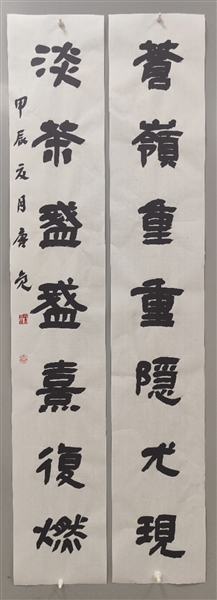 蒼嶺重重隱尤現
淡茶盞盞熹復燃
甲辰夏月唐